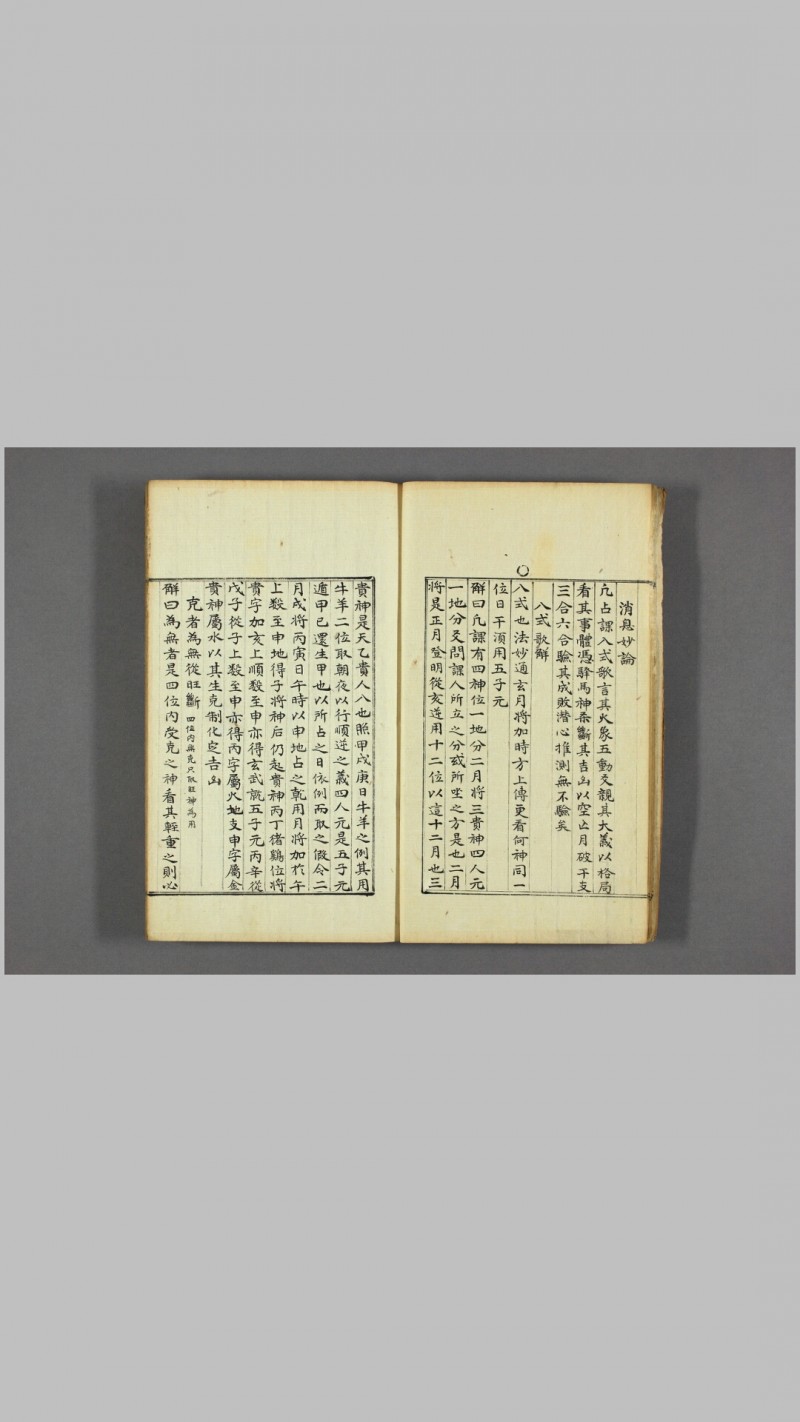 消息妙論
凢占課入式歌言其火象五動爻親其大義以格局
看其事體憑驛馬神杀斷其吉凶以空亡月破干支
三合六合驗其成敗潛心推測無不驗矣
入式歌解
入式也法妙通玄月將加時方上傳更看何神同一
位日干須用五子元
解曰凢課有四神位一地分二月將三貴神四人元
一地分爻問課人所立之分或所坐之方是也二月
將是正月登明從亥逆用十二位以這十二月也三
貴神是天乙貴人八也照甲戊庚日牛羊之例其用
牛羊二位取朝夜以行順逆之義四人元是五子元
遁甲已還生甲也以所占之日依例而取之假令二
月戌將丙寅日午時以申地占之乾用月將加於午
上殺至申地得子將神后仍起貴神丙丁猪鷄位將
貴字加亥上順殺至申亦得玄武就五子元丙辛從
戊子從子上殺至申亦得丙字屬火地支申字屬金
貴神屬水以其生克制化定吉凶
克者為無從旺斷 四位内無克只取旺神為用
解曰為無者是四位内受克之神看其輕重之則必